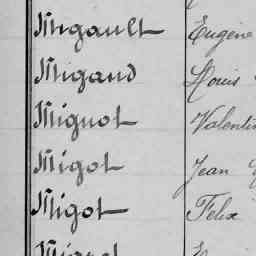 Migault Eugène
Migaud Louis
Mignot Valentin
Migot Jean
Migot Félix